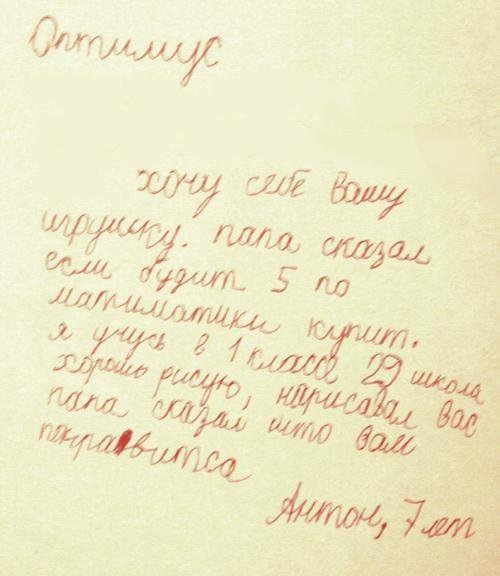 Оптимус
хочу себе вашу
игрушку. папа сказал
если будит 5 по
матиматики купит.
я учусь в 1 классе 29 школа
хорошо рисую, нарисавал вас
папа сказал што вам
понравитса
Антон, 7 лет